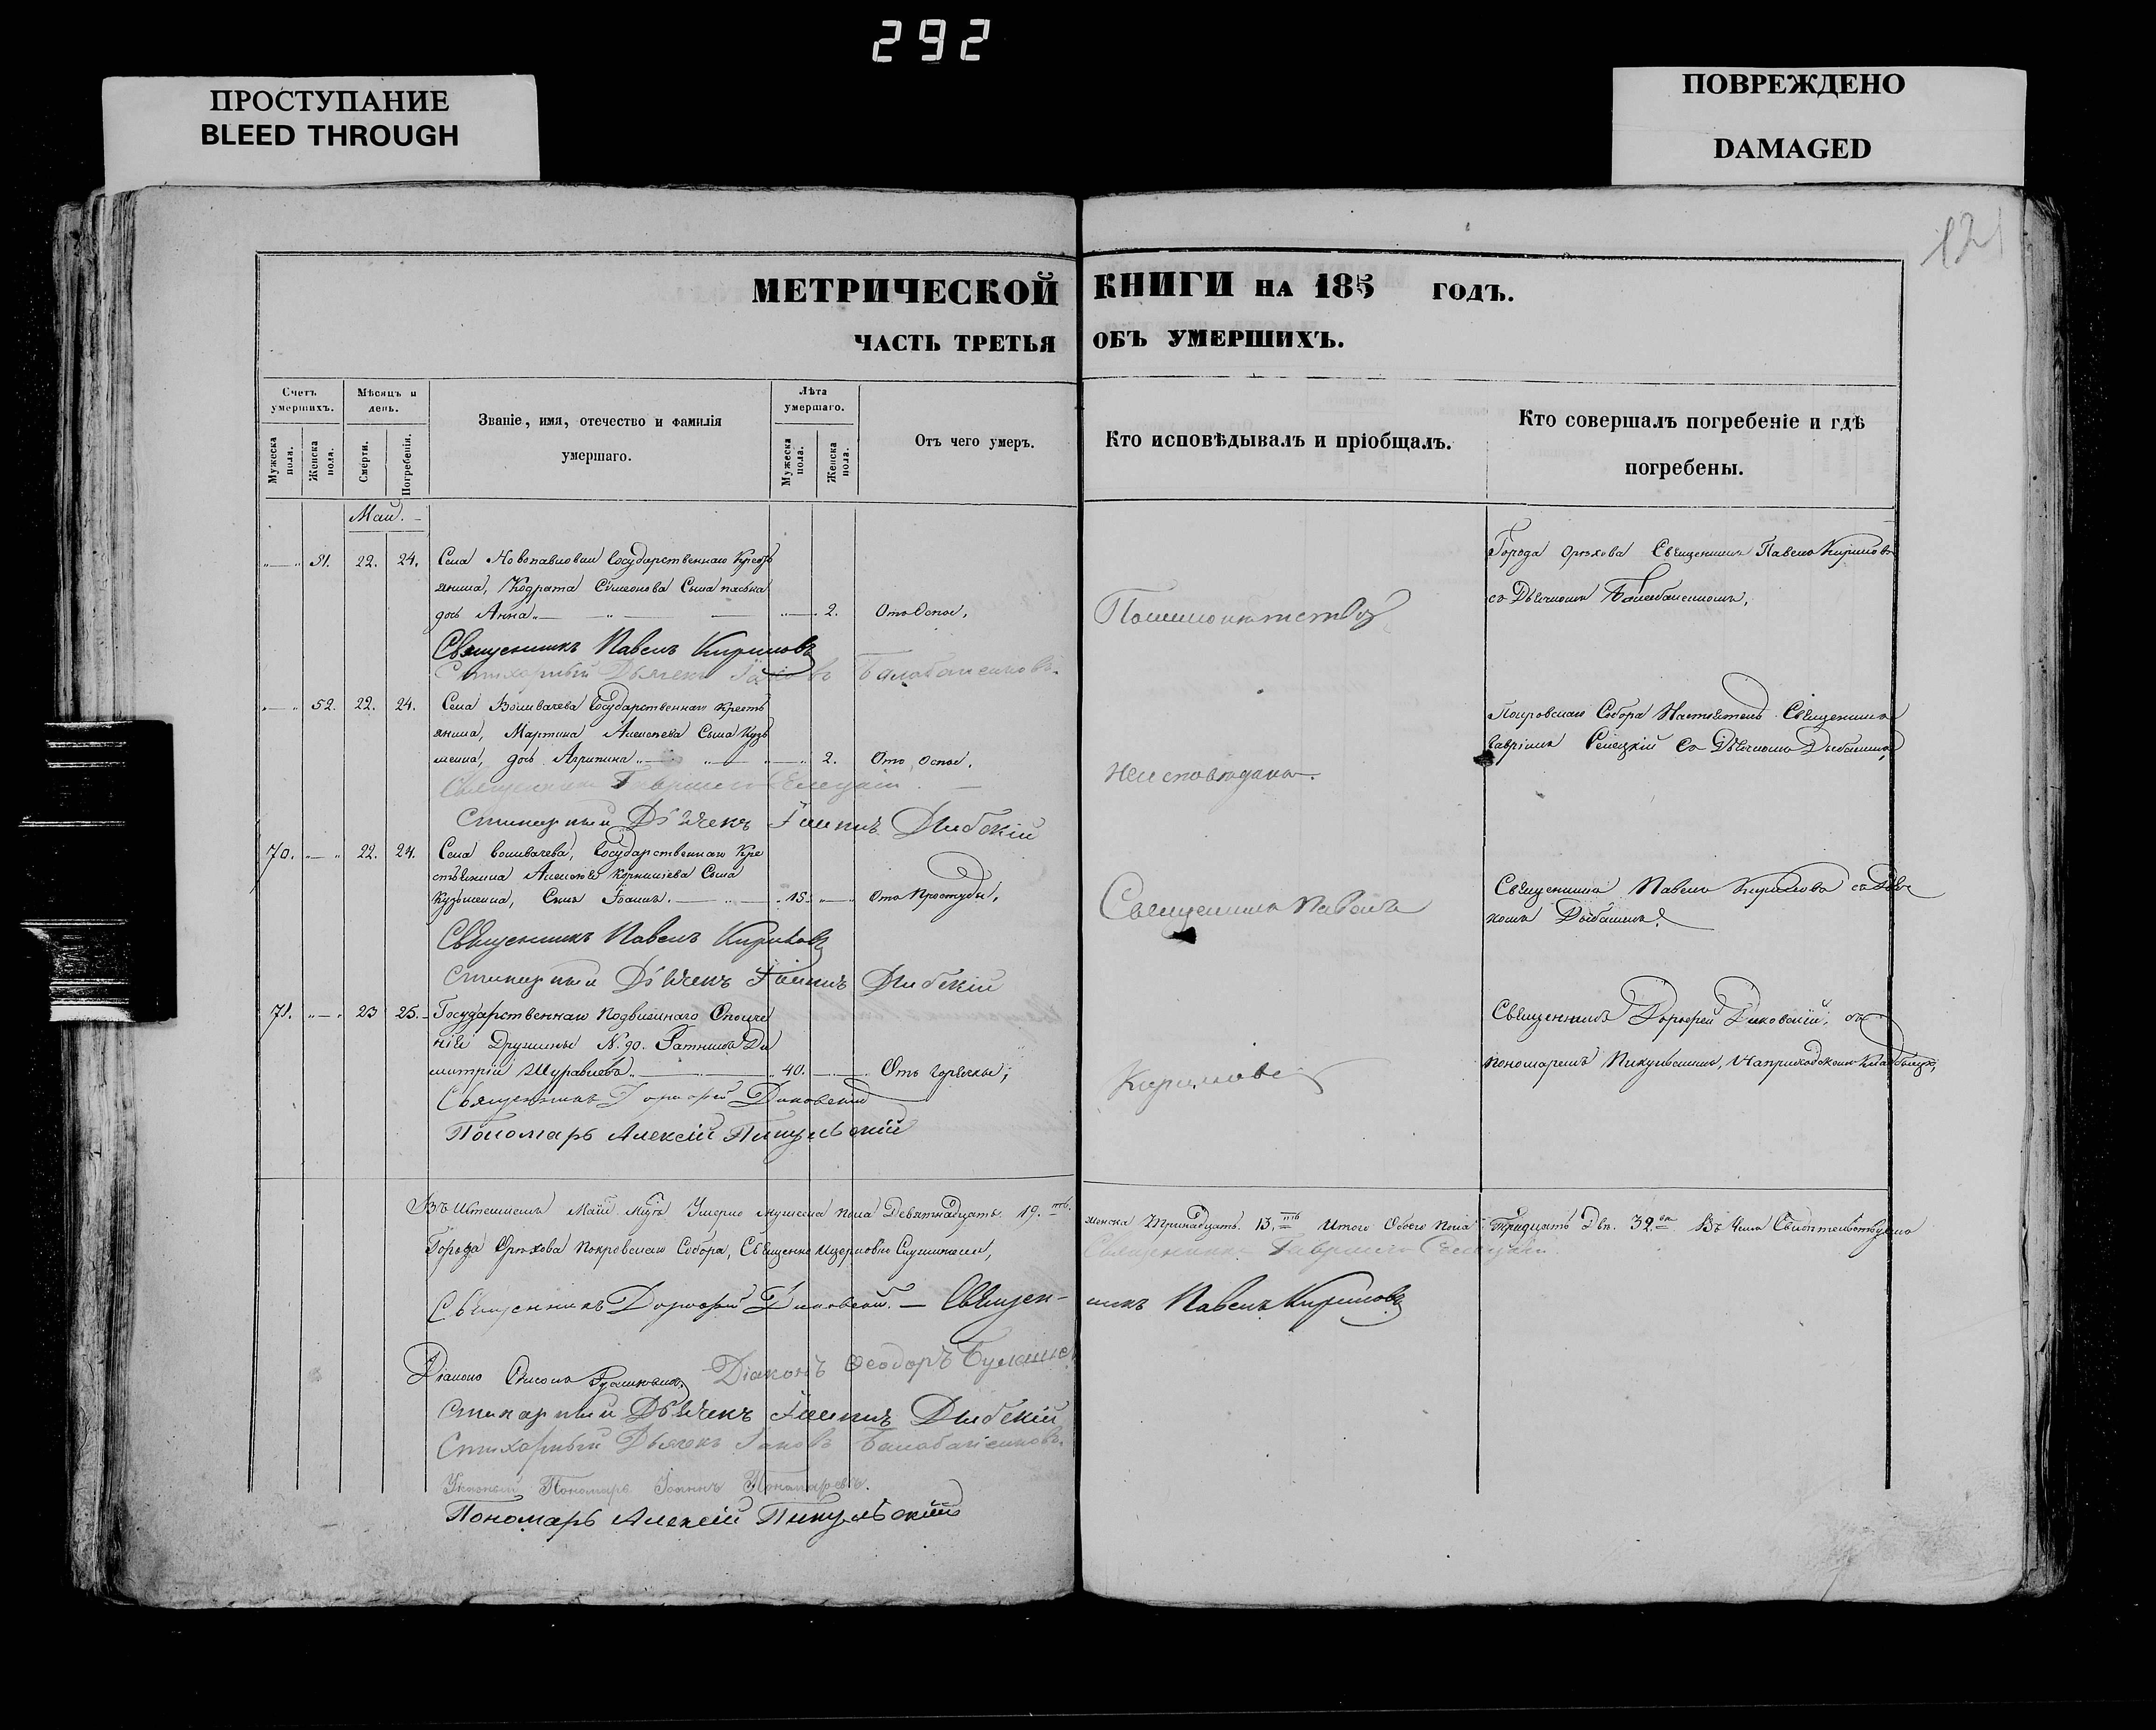 292
ПРОСТУПАНИЕ
BLEED THROUGH
ПОВРЕЖДЕНО
DAMAGED
121
МЕТРИЧЕСКОЙ КНИГИ НА 185 ГОДЪ.
ЧАСТЬ ТРЕТЬЯ ОБЪ УМЕРШИХЪ.
Счетъ умершихъ.
Мужеска пола.
Женска пола.
Мѣсяцъ и день.
Смерти.
Погребенія.
Званіе, имя, отечество и фамилія
умершаго.
Лѣта умершаго.
Мужеска пола.
Женска пола.
Отъ чего умеръ.
Кто исповѣдывалъ и пріобщалъ.
Кто совершалъ погребеніе и гдѣ
погребены.
Маій.
51. 22. 24. Села Новопавловки Государственнаго Кресть
янина, Кодрата Сѵмеонова Сына
дочь Анна 2. Отъ Оспы.
Священникъ Павелъ Кириловъ
Стихарный Дьячекъ Іаковъ Балабаненковъ
Города Орѣхова Священникъ Павелъ Кириловъ
съ Дьячкомъ Балабаненкомъ.
52. 22. 24. Села Государственнаго Кресть
янина, Мартина Алексѣева Сына Кузь
менка, дочь Агрипина 2. Отъ Оспы.
Священникъ Гавріилъ
Стихарный Дьячекъ Іоаннъ
Неисповѣдана
Покровскаго Собора Настоятель Священникъ
Гавріилъ съ Дьячкомъ
70. 22. 24. Села Государственнаго Кре
стьянина Алексѣя Корниліева Сына
Кузьменка, Сынъ Іоаннъ. 15. Отъ Простуды.
Священникъ Павелъ Кириловъ
Стихарный Дьячекъ Іоаннъ
Священникъ Павелъ
Священникъ Павелъ Кириловъ съ Дьяч
комъ
71. 23 25. Государственнаго Подвижнаго Ополче
нія Дружины N. 90. Ратникъ Ди
митрій Журавлевъ 40. Отъ Горячки;
Священникъ Дороѳей Диковскій
Пономарь Алексій Пикульскій
Кириловъ
Священникъ Дороѳей Диковскій, съ
пономаремъ Пикульскимъ, На приходскомъ Кладбищѣ,
Маіи Умерло мужеска пола Девятнадцать 19. женска Тринадцать. 13. Итого Обоего Пола Тридцать Два. 32. Въ чемъ Свидѣтельствуемъ
Города Орѣхова Покровскаго Собора, Священно
Священникъ Гавріилъ
Священникъ Дороѳей Диковскій. — Священникъ Павелъ Кириловъ
Діаконъ Діаконъ Ѳеодоръ
Стихарный Дьячекъ Іоаннъ
Стихарный Дьячекъ Іаковъ Балабаненковъ
Указный Пономарь Іоаннъ Пономаревъ.
Пономарь Алексій Пикульскій